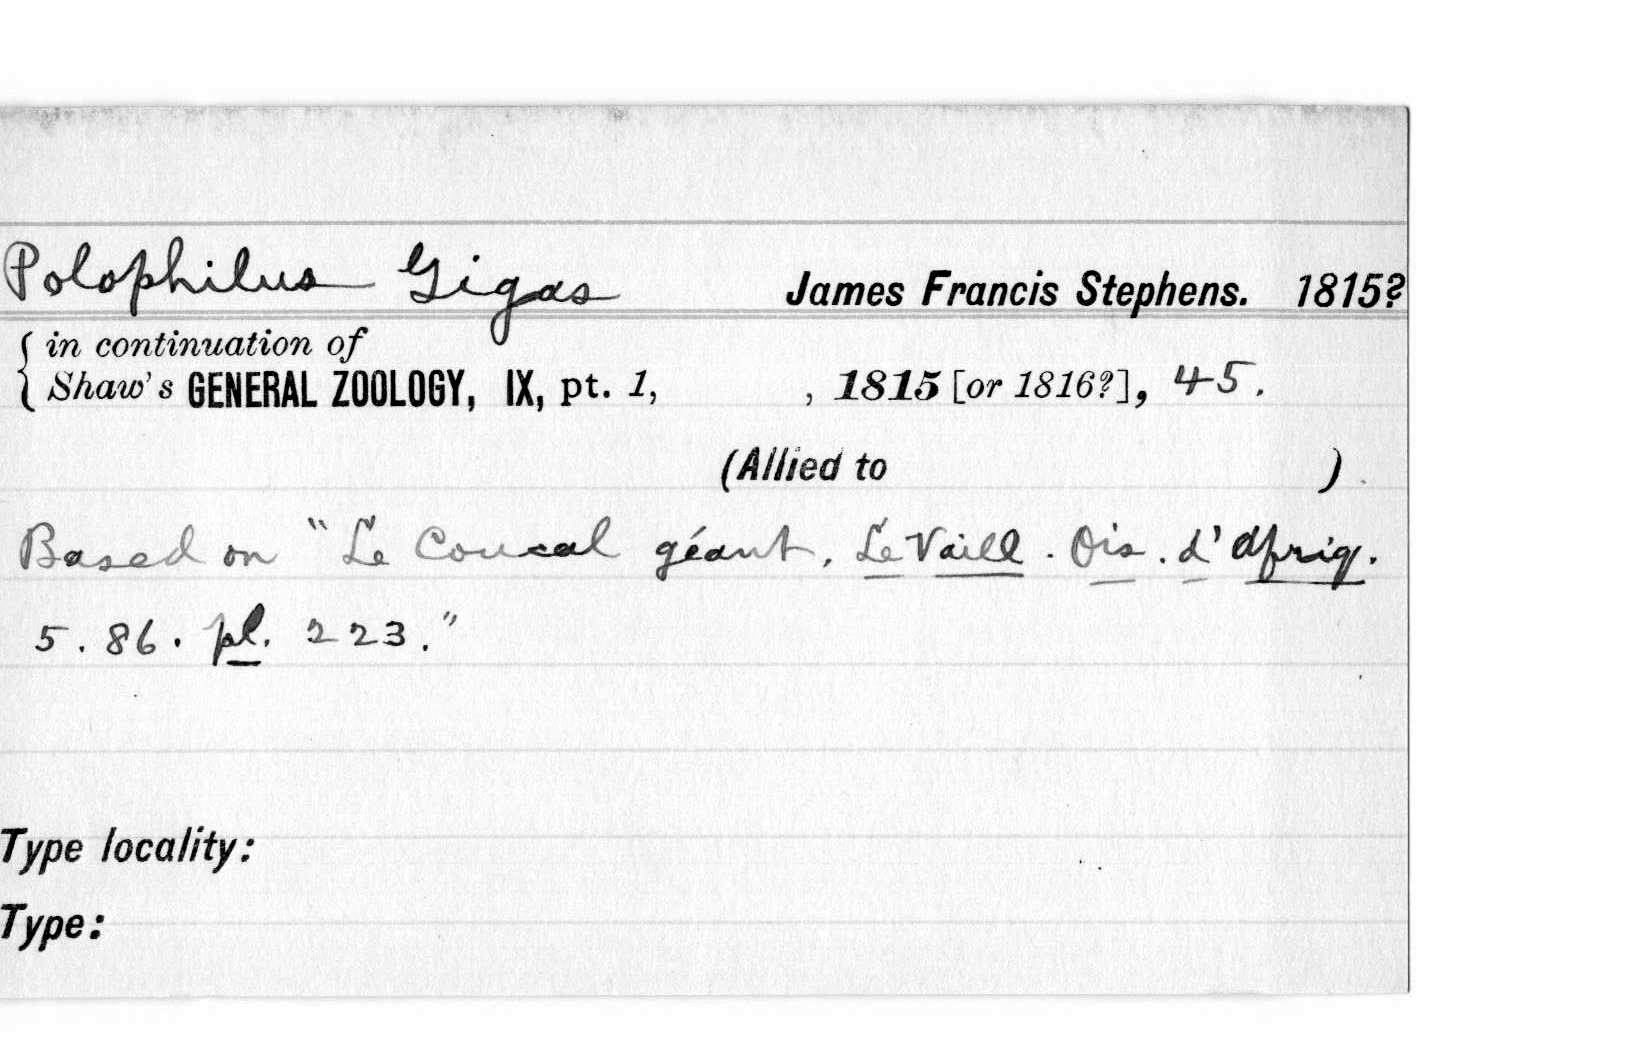 Polophilus Gigas James Francis Stephens. 1815?
in continuation of
Shaw's GENERAL ZOOLOGY, IX, pt. 1, , 1815 [or 1816?], 45.
(Allied to )
Based on "Le Coucal géant, Le Vaill. Ois. d'Afriq.
5. 86. pl. 223."
Type locality:
Type: